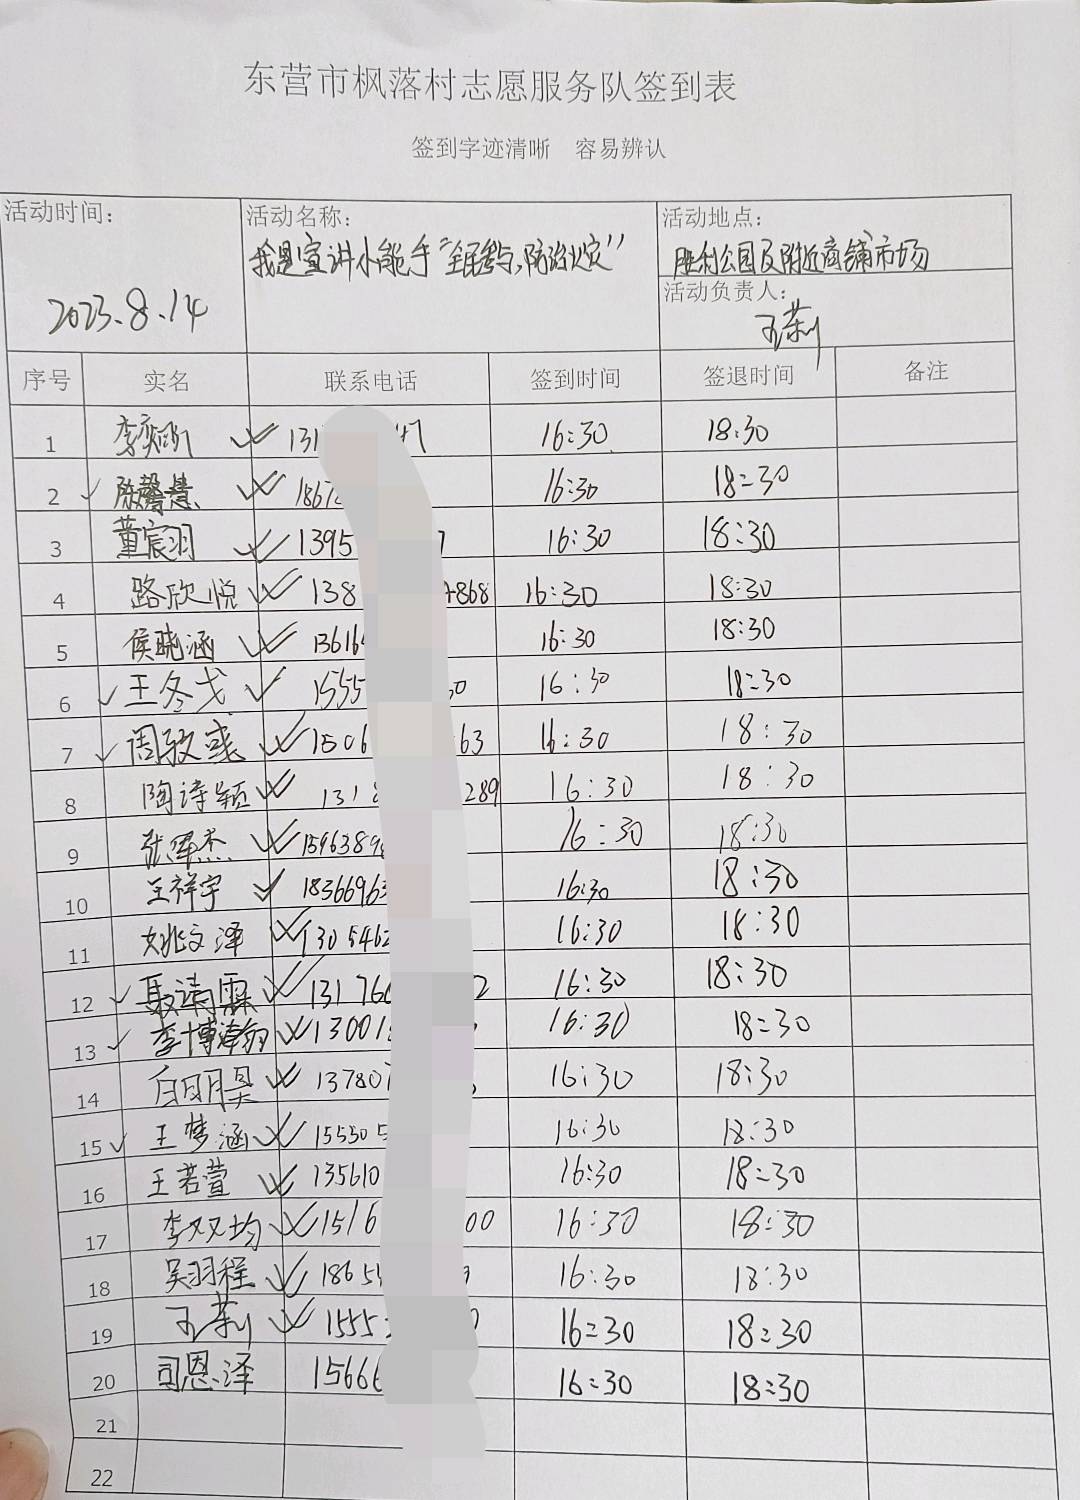 东营市枫落村志愿服务队签到表
签到字迹清晰 容易辨认
活动时间: 活动名称: 活动地点:
我是宣讲小能手“全民参与,防治火灾” 胜利公园及附近商铺市场
2023.8.14 活动负责人:
王莉
序号 实名 联系电话 签到时间 签退时间 备注
1 131 47 16:30 18:30
2 陈馨慧 1867 16:30 18:30
3 董宸羽 1395 7 16:30 18:30
4 路欣悦 138 4868 16:30 18:30
5 侯晓涵 13616 16:30 18:30
6 王冬戈 1555 30 16:30 18:30
7 周致彧 1506 63 16:30 18:30
8 陶诗颖 131 289 16:30 18:30
9 1596389 16:30 18:30
10 王祥宇 1836696 16:30 18:30
11 姚文泽 1305462 16:30 18:30
12 聂靖霖 13176 2 16:30 18:30
13 李博瀚 13001 16:30 18:30
14 白明昊 13780 16:30 18:30
15 王梦涵 155305 16:30 18:30
16 王若萱 135610 16:30 18:30
17 李双均 1516 00 16:30 18:30
18 吴羽程 1865 16:30 18:30
19 王莉 1555 16:30 18:30
20 司恩泽 15666 16:30 18:30
21
22